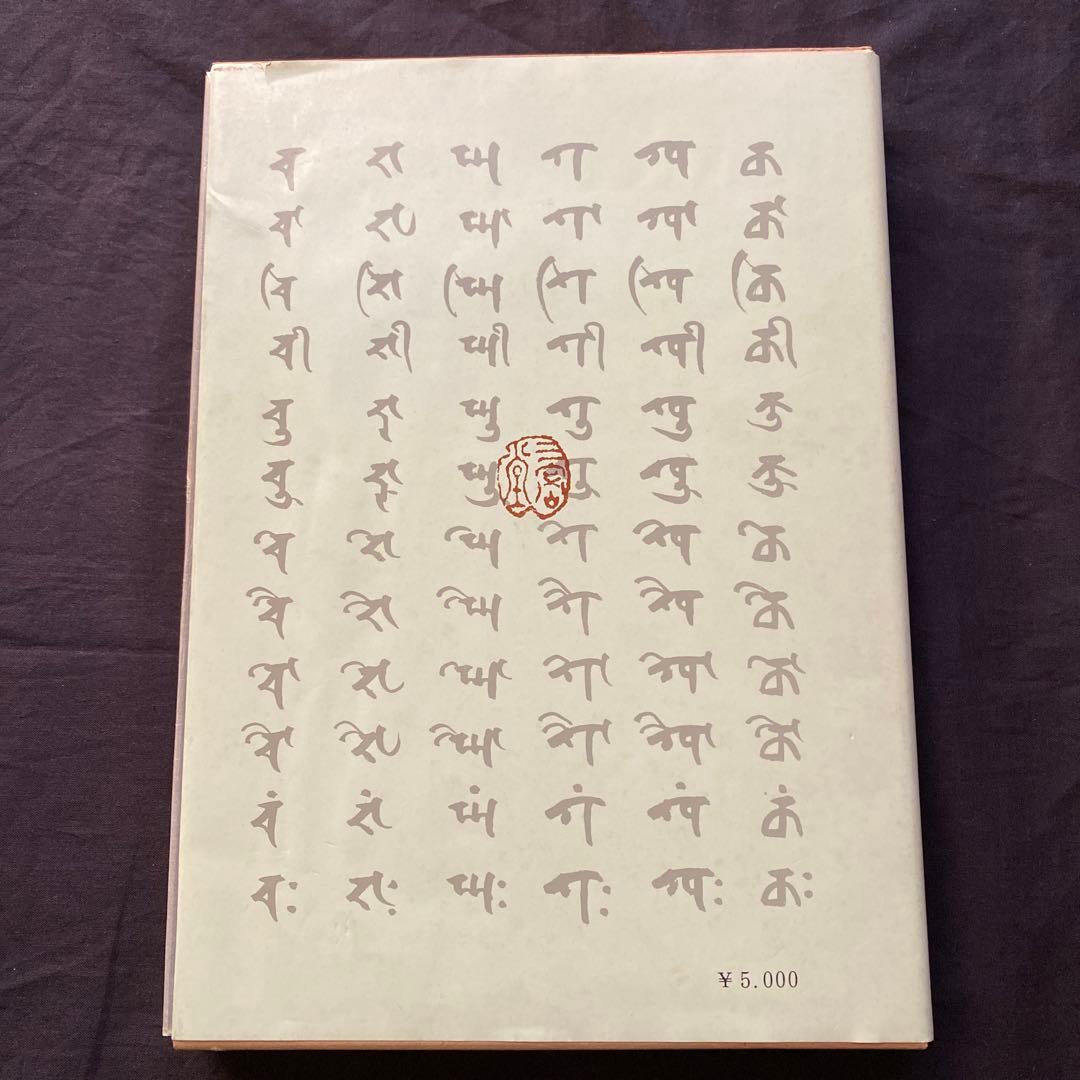 𑖓 𑖒 𑖑 𑖐 𑖏 𑖎
𑖓𑖯 𑖒𑖯 𑖑𑖯 𑖐𑖯 𑖏𑖯 𑖎𑖯
𑖓𑖰 𑖒𑖰 𑖑𑖰 𑖐𑖰 𑖏𑖰 𑖎𑖰
𑖓𑖱 𑖒𑖱 𑖑𑖱 𑖐𑖱 𑖏𑖱 𑖎𑖱
𑖓𑖲 𑖒𑖲 𑖑𑖲 𑖐𑖲 𑖏𑖲 𑖎𑖲
𑖓𑖳 𑖒𑖳 𑖑𑖳 𑖐𑖳 𑖏𑖳 𑖎𑖳
𑖓𑖸 𑖒𑖸 𑖑𑖸 𑖐𑖸 𑖏𑖸 𑖎𑖸
𑖓𑖹 𑖒𑖹 𑖑𑖹 𑖐𑖹 𑖏𑖹 𑖎𑖹
𑖓𑖺 𑖒𑖺 𑖑𑖺 𑖐𑖺 𑖏𑖺 𑖎𑖺
𑖓𑖻 𑖒𑖻 𑖑𑖻 𑖐𑖻 𑖏𑖻 𑖎𑖻
𑖓𑖽 𑖒𑖽 𑖑𑖽 𑖐𑖽 𑖏𑖽 𑖎𑖽
𑖓𑖾 𑖒𑖾 𑖑𑖾 𑖐𑖾 𑖏𑖾 𑖎𑖾
¥ 5.000